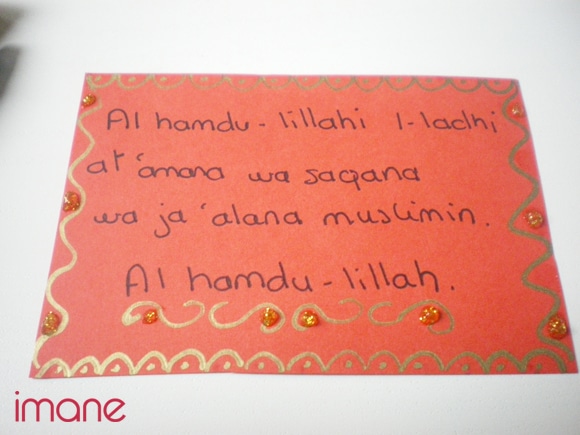 Al hamdu-lillahi l-ladhi
at'amana wa saqana
wa ja'alana muslimin.
Al hamdu-lillah.
imane